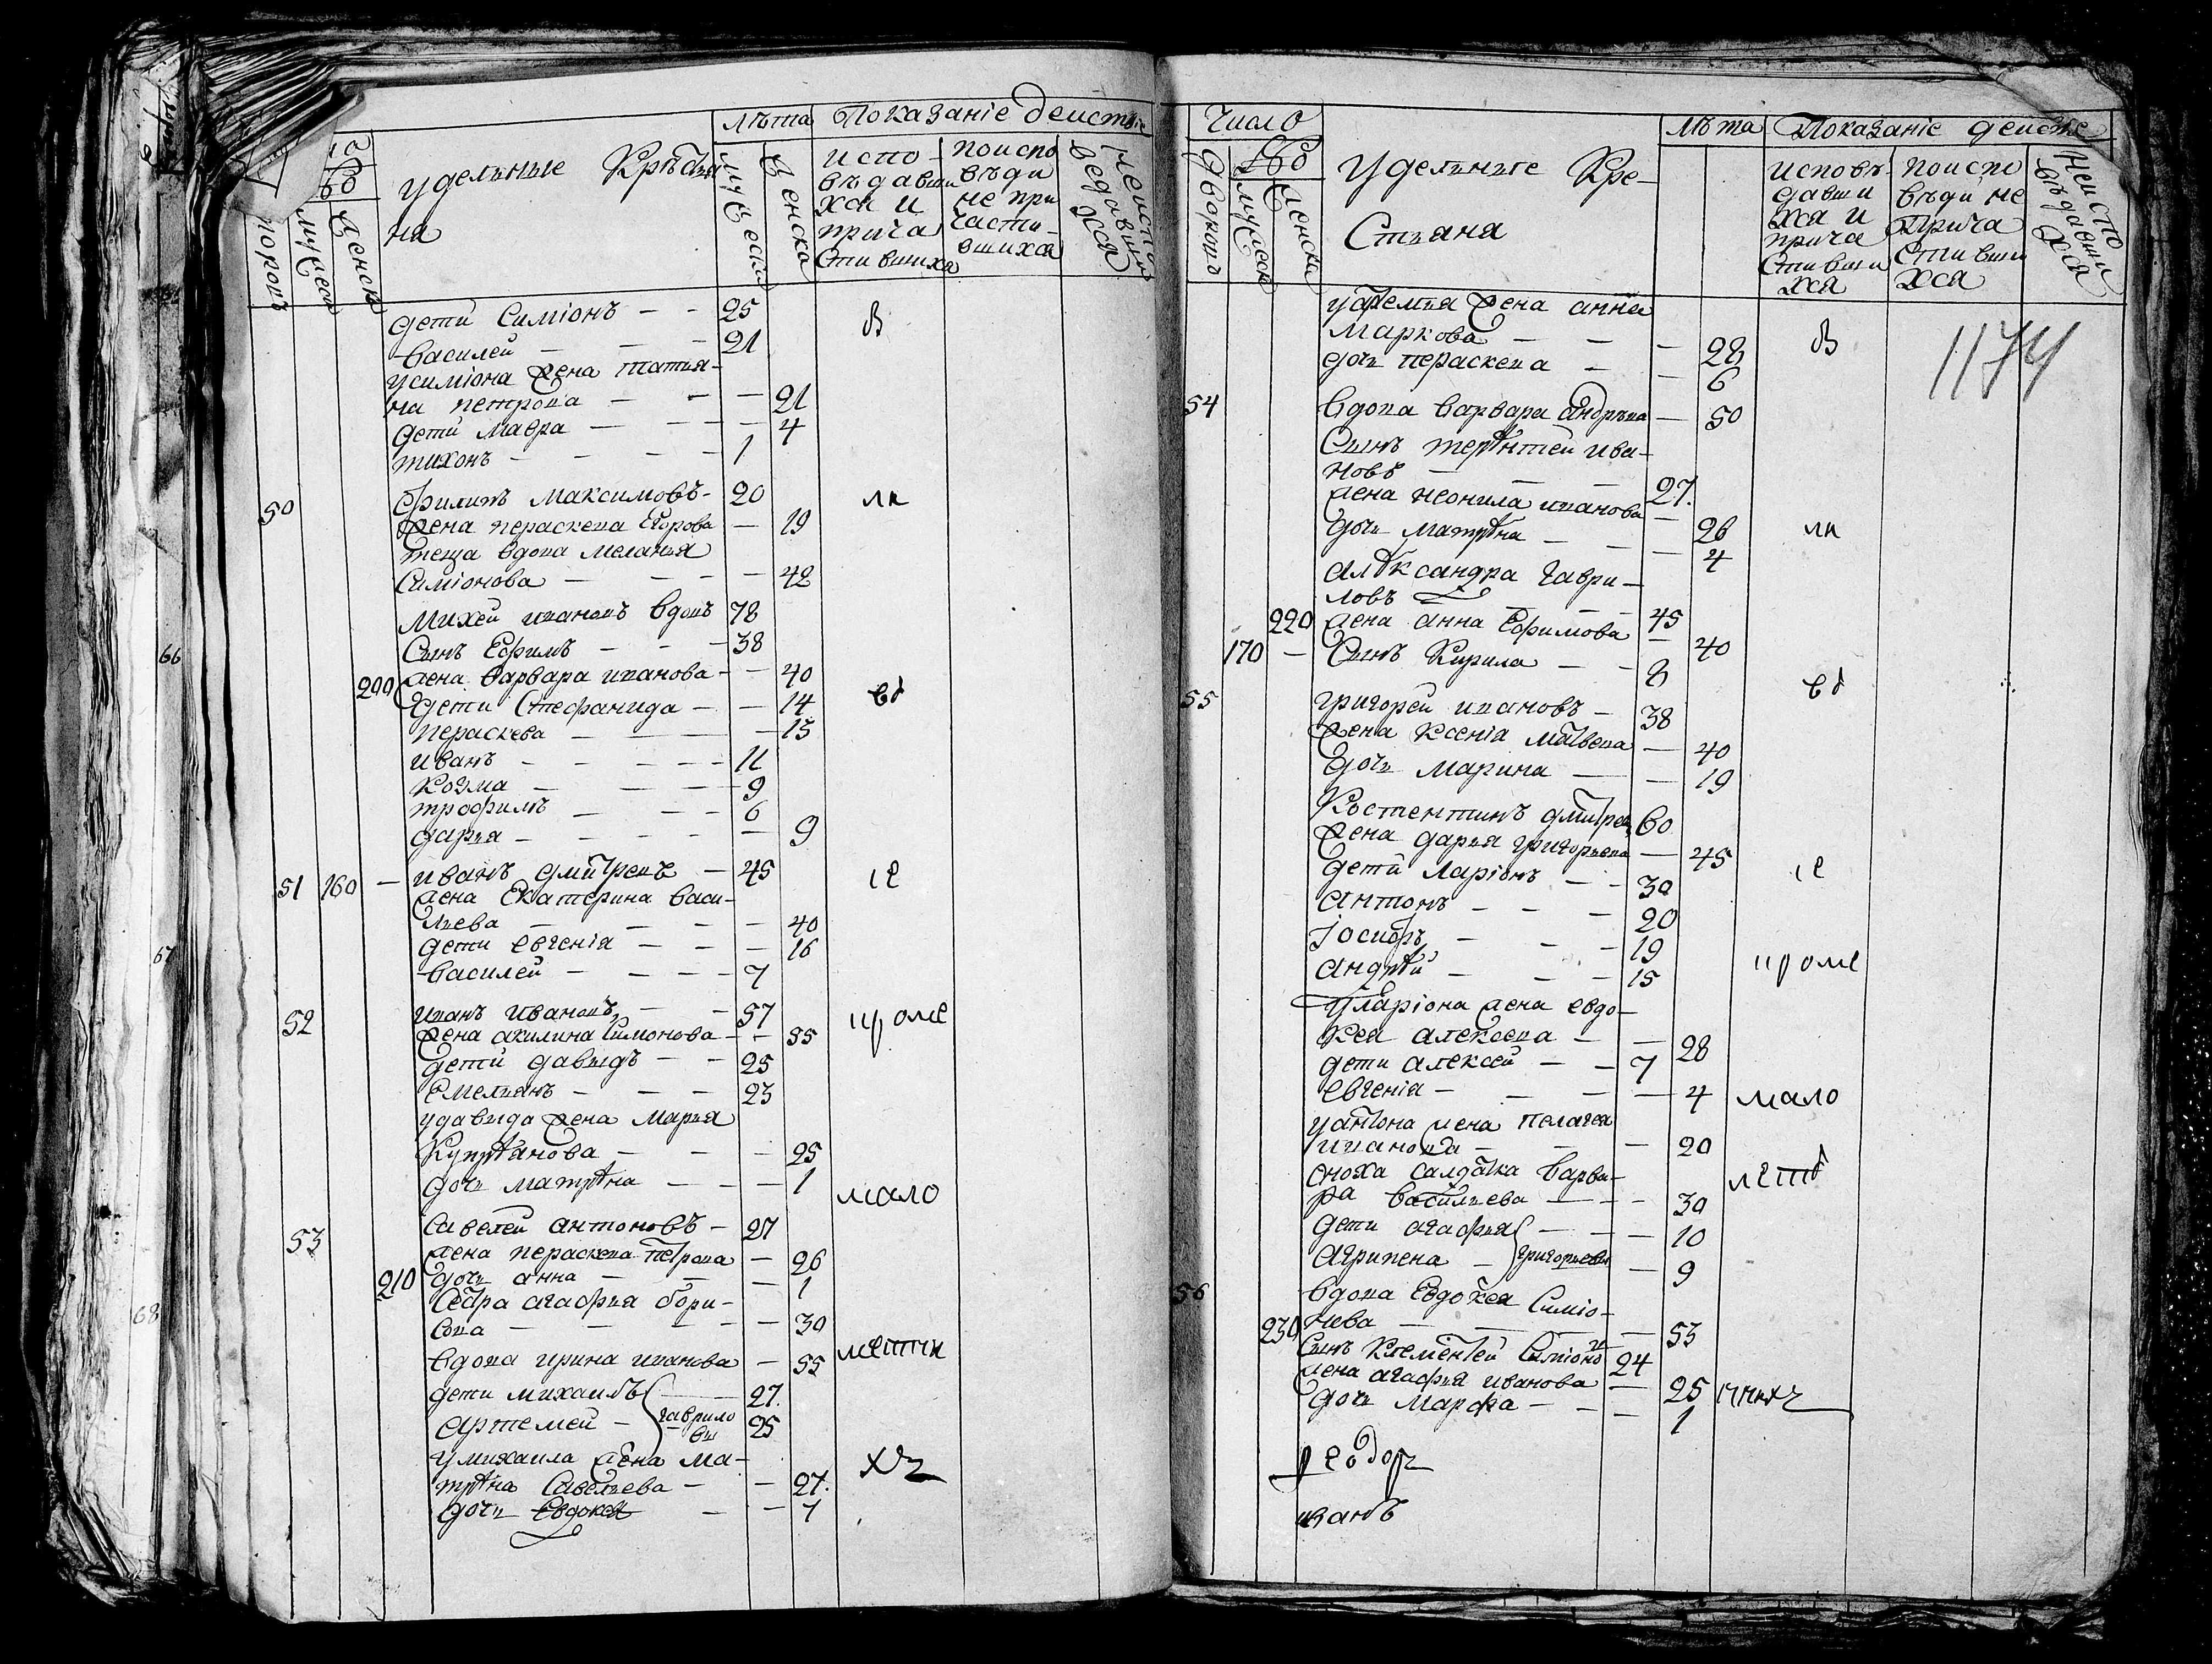 лѣта Показанiе действiе
удельные Крѣстья
на
мужеска
женска
испо-
вѣдавши
хся и
прича
стившихся
поиспо
вѣди
не при
части-
вшихся
неиспо
ведавши
хся
дети Симiонъ — — 25
василей — — — 21
усимiона жена татья-
на петрова — — — 21
дети мавра — — — 4
тихонъ — — — 1
50 филипъ максимовъ- 20
жена пераскева Егорова — 19
теща вдова меланья
Симiонова — — — 42
михей ивановъ вдовъ 78
Сынъ Ефимъ — — — 38
200 жена варвара иванова — — 40
дети Стефанида — — 14
пераскева — — — 13
иванъ — — — 11
козма — — — 9
трофимъ — — — 6
дарья — — — — 9
51 160 — иванъ дмитревъ — 45
жена Екатерина васи-
льева — — — — 40
дети евгенiя — — — 16
василей — — — — 7
52 иванъ ивановъ — — 57
жена акилина Симонова — — 55
дети давыдъ — — 25
емельянъ — — — 23
удавыда жена марья
Купрѣянова — — — 25
дочь матрѣна — — — 1
53 Савелей антоновъ — 27
жена пераскева петрова — 26
210 дочь анна — — — 1
Сестра агафья бори-
сова — — — — 30
вдова ирина иванова — 55
дети михаилъ — — 27.
артемей — гаврило
вы 25
умихаила жена ма-
трѣна Савельева — — 27.
дочь Евдокея — — 1
в
ки
мало
66
67
68
Число
дворовъ
мужеск
женска
удельные Кре-
стьяна
лѣта Показанiе действе
исповѣ
давши
хся и
прича
стивши
хся
поиспо
вѣди не
прича
стивши
хся
неиспо
вѣдавши
хся
1174
уартемья жена анна
маркова — — — 28
дочь пераскева — — 6
54 вдова варвара андрѣева — 50
Сынъ терѣнтей ива-
новъ — — — 27.
жена неонила иванова — 26
дочь матрѣна — — — 4
алѣксандра гаври-
ловъ — — — 45
220 жена анна Ефимова — 40
170 — Сынъ Кирила — — 8
55 григорей ивановъ — 38
жена Ксенiя матвева — 40
дочь марина — — 19
Костентинъ дмитрев 60
жена дарья григорьева — 45
дети ларiонъ — — 30
антонъ — — — 20
Iосифъ — — — 19
андрѣй — — — 15
уларiона жена евдо-
кея алексеева — — 28
дети алексей — — 7
евгенiя — — — — 4
уантона жена пелагея
иванова — — — 20
сноха салдатка варва-
ра васильева — — — 30
дети агафья — — — 10
агрипена — григорьевы — 9
56 вдова Евдокея Симiо-
нева — — — — 53
230 Сынъ Клементей Симiоно 24
жена агафья иванова — 25
дочь марфа — — — 1
мало
Феодоръ
иванъ